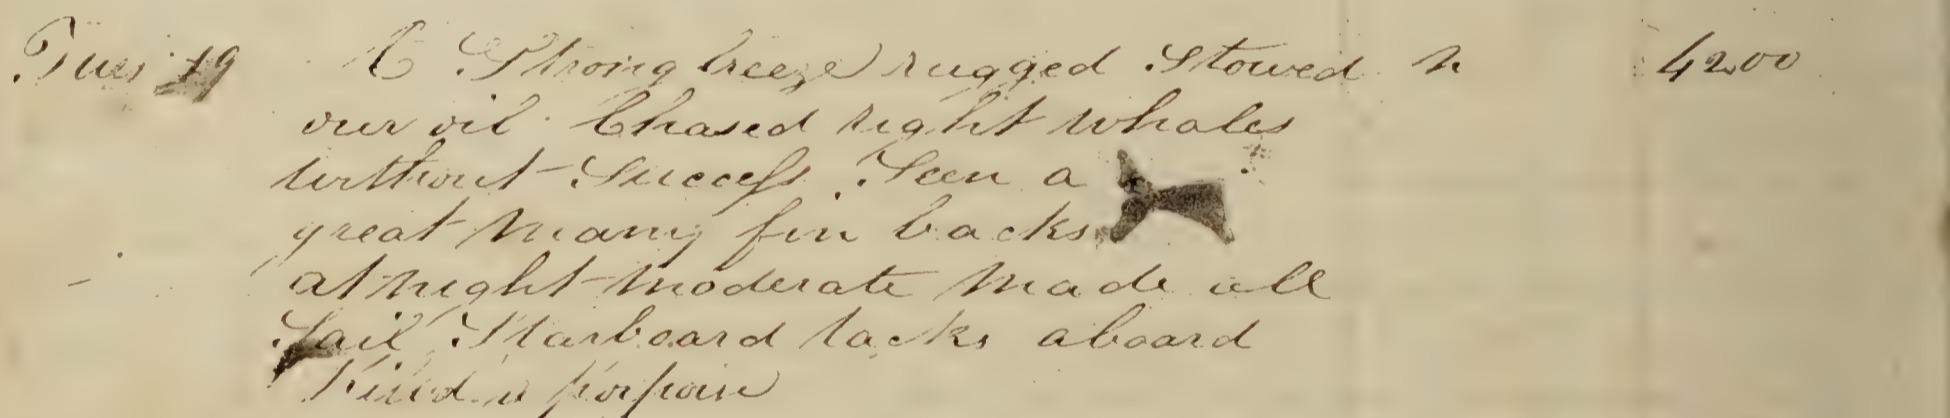 Tues 19 C Strong breeze rugged Stowed n 4200
our oil Chased right whales
without Success. Seen a
great many fin backs
at night moderate made all
Sail Starboard tacks aboard
Killed a porpois